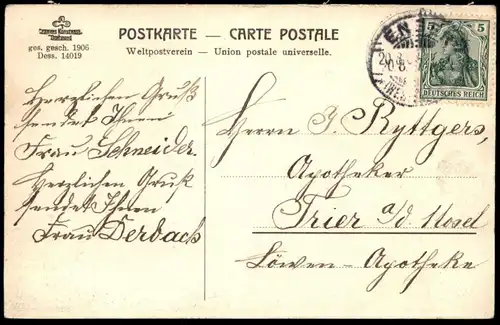 POSTKARTE — CARTE POSTALE
Weltpostverein — Union postale universelle.
ges. gesch. 1906
Dess. 14019
5 5
DEUTSCHES REICH
Herzlichen Gruß
sendet Ihnen
Frau Schneider.
Herzlichen Gruß
sendet Ihnen
Frau Derbach
Herrn J. Ryttgers,
Apotheker
Trier a/d. Mosel
Löwen-Apotheke